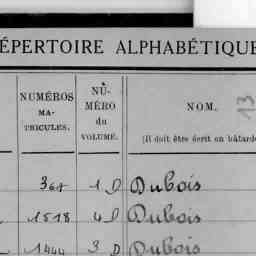 RÉPERTOIRE ALPHABÉTIQUE
NUMÉROS MA-TRICULES. NU-MÉRO du VOLUME. NOM. (Il doit être écrit en bâtarde 13
361 1 D Dubois
1518 4 D Dubois
1444 3 D Dubois